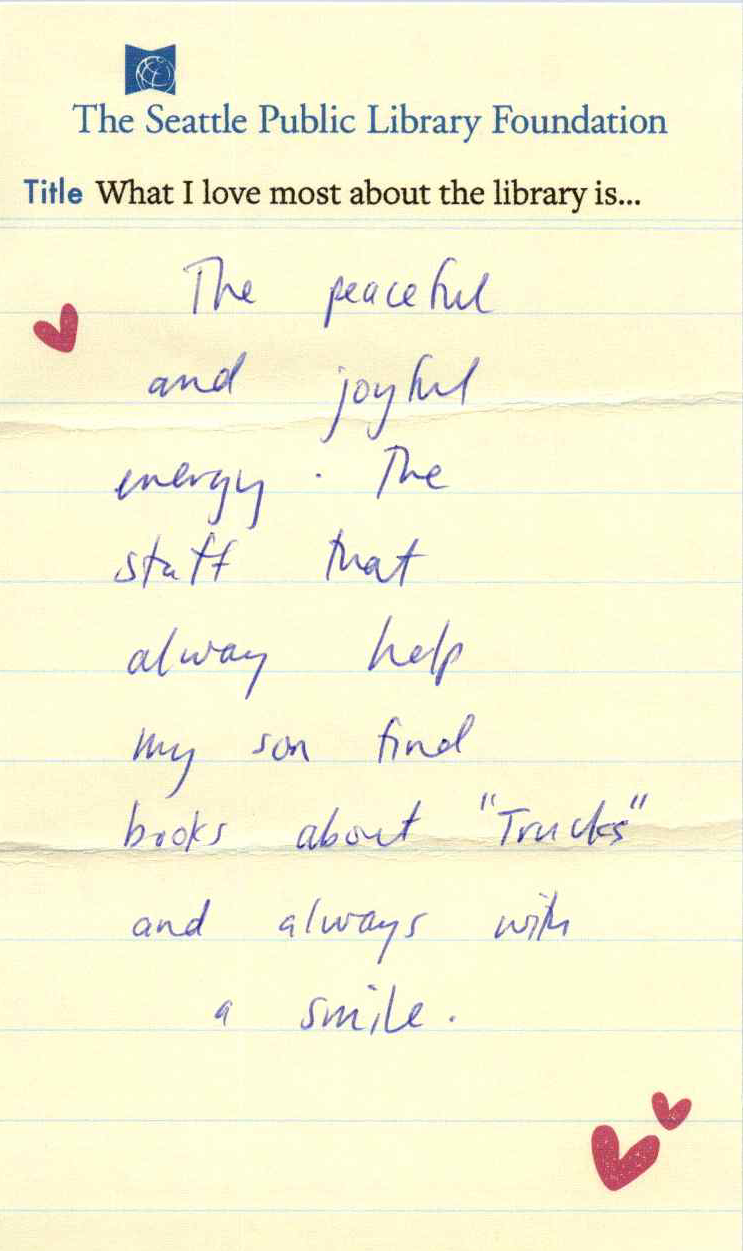 The Seattle Public Library Foundation
Title What I love most about the library is...
The peaceful
and joyful
energy. The
staff that
alway help
my son find
books about "Trucks"
and always with
a smile.